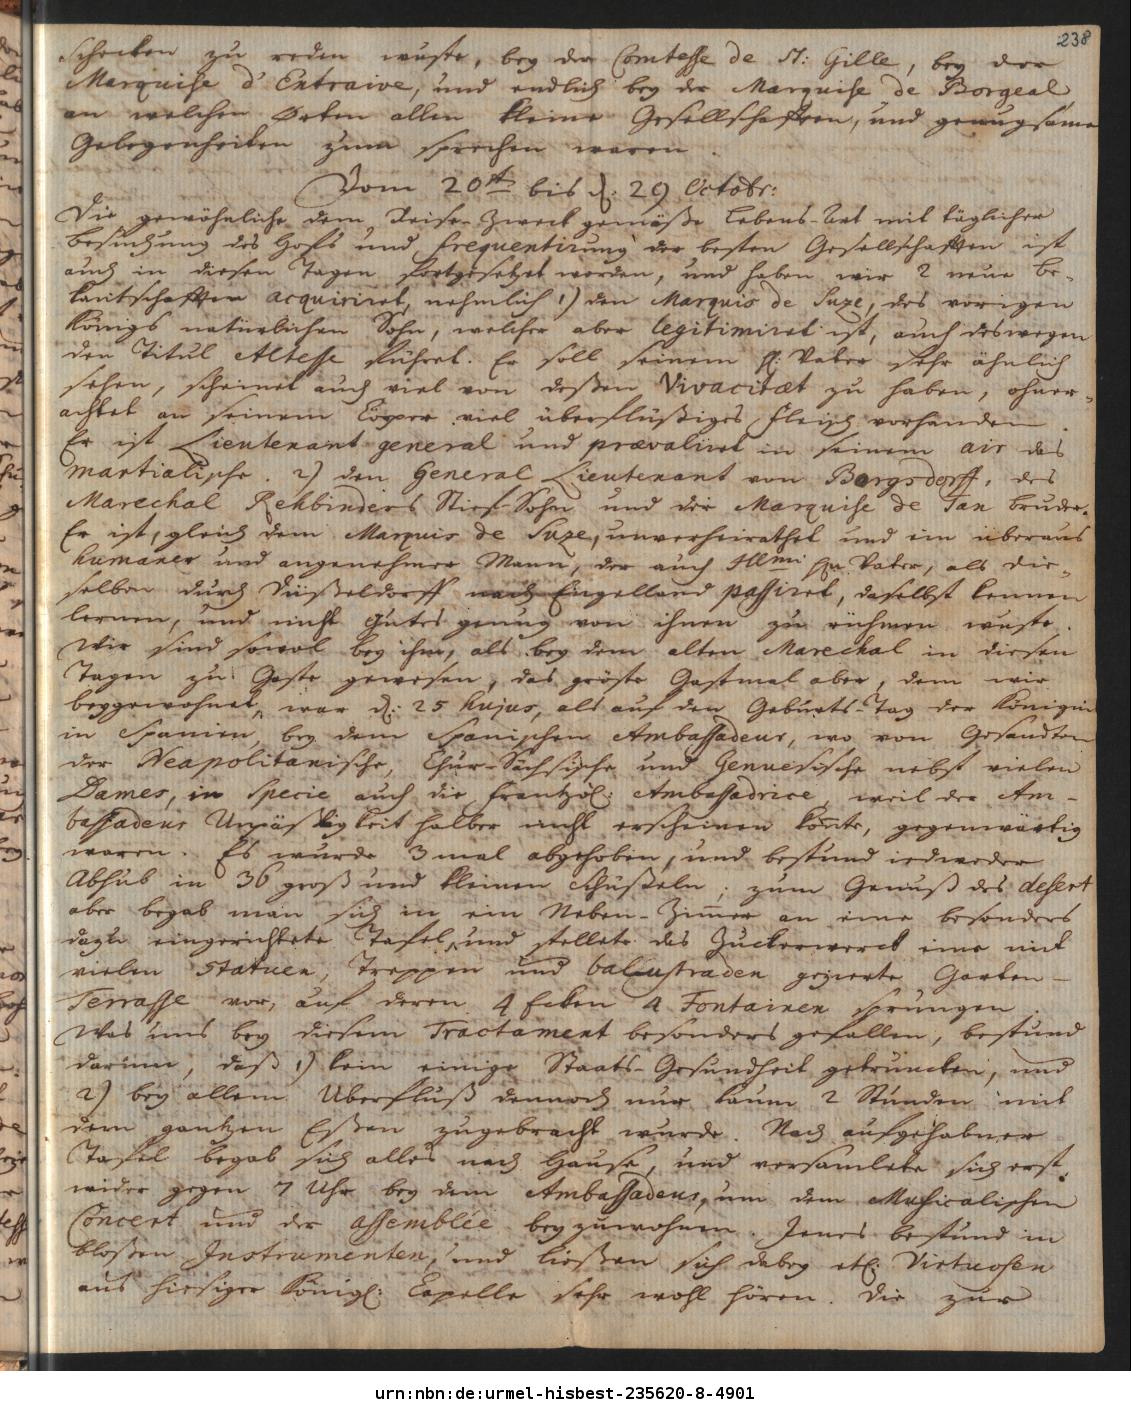 238
schecken zu reden wuste, bey der Comtesse de St: Gille, bey der
Marquise d'Entraive, und endlich bey der Marquise de Borgeal,
an welchen Orten allen kleine Gesellschafften, und genugsame
Gelegenheiten zum sprechen waren.
Vom 20st bis d: 29 Octobr:
Die gewöhnliche dem Reise-Zweck gemäße Lebens-Art mit täglicher
Besuchung des Hofs und frequentirung der besten Gesellschafften ist
auch in diesen Tagen fortgesetzet worden, und haben wir 2 neue Be-
kantschafften acquiriret, nehmlich 1) den Marquis de Suze, des vorigen
Königs natürlichen Sohn, welcher aber legitimiret ist, auch deswegen
den Titul Altesse führet. Er soll seinem H: Vater sehr ähnlich
sehen, scheinet auch viel von deßen Vivacitæt zu haben, ohner-
achtet an seinem Cörper viel überflüßiges Fleisch vorhanden.
Er ist Lieutenant general und prævaliret in seinem air das
martialische. 2) den General Lieutenant von Borgsdorff, des
Marechal Rehbinders Stief-Sohn und der Marquise de Tan Bruder.
Er ist, gleich dem Marquis de Suze, unverheirathet und ein überaus
humaner und angenehmer Mann, der auch Illmi Hn Vater, als die-
selben durch Düßeldorff nach Engelland passiret, daselbst kennen
lernen, und nicht gutes genung von ihnen zu rühmen wuste.
Wir sind sowol bey ihm, als bey dem alten Marechal in diesen
Tagen zu Gaste gewesen, das gröste Gastmal aber, dem wir
beygewohnet, war d: 25 hujus, als auf den Geburts-Tag der Königin
in Spanien, bey dem Spanischen Ambassadeur, wo von Gesandten
der Neapolitanische, Chur-Sächsische und Genuesische nebst vielen
Dames, in specie auch die frantzös: Ambassadrice, weil der Am-
bassadeur Unpäßligkeit halber nicht erscheinen konte, gegenwärtig
waren. Es wurde 3 mal abgehoben, und bestund iedweder
Abhub in 36 groß und kleinen Schüßeln; zum Genuß des desert
aber begab man sich in ein Neben-Zimmer an eine besonders
dazu eingerichtete Tafel, und stellete das Zuckerwerck eine mit
vielen Statuen, Treppen und balustraden gezierte Garten-
Terrasse vor, auf deren 4 Ecken 4 Fontainen sprungen.
Was uns bey diesem Tractament besonders gefallen, bestund
darinn, daß 1) kein einige Staats-Gesundheit getruncken, und
2) bey allem Uberfluß dennoch nur kaum 2 Stunden mit
dem gantzen Eßen zugebracht wurde. Nach aufgehabner
Tafel begab sich alles nach Hause, und versamlete sich erst
wider gegen 7 Uhr bey dem Ambassadeur, um dem Musicalischen
Concert und der assemblée beyzuwohnen. Jenes bestund in
bloßen Instrumenten, und ließen sich dabey etl: Virtuosen
aus hiesiger Königl: Capelle sehr wohl hören. Die zur
urn:nbn:de:urmel-hisbest-235620-8-4901